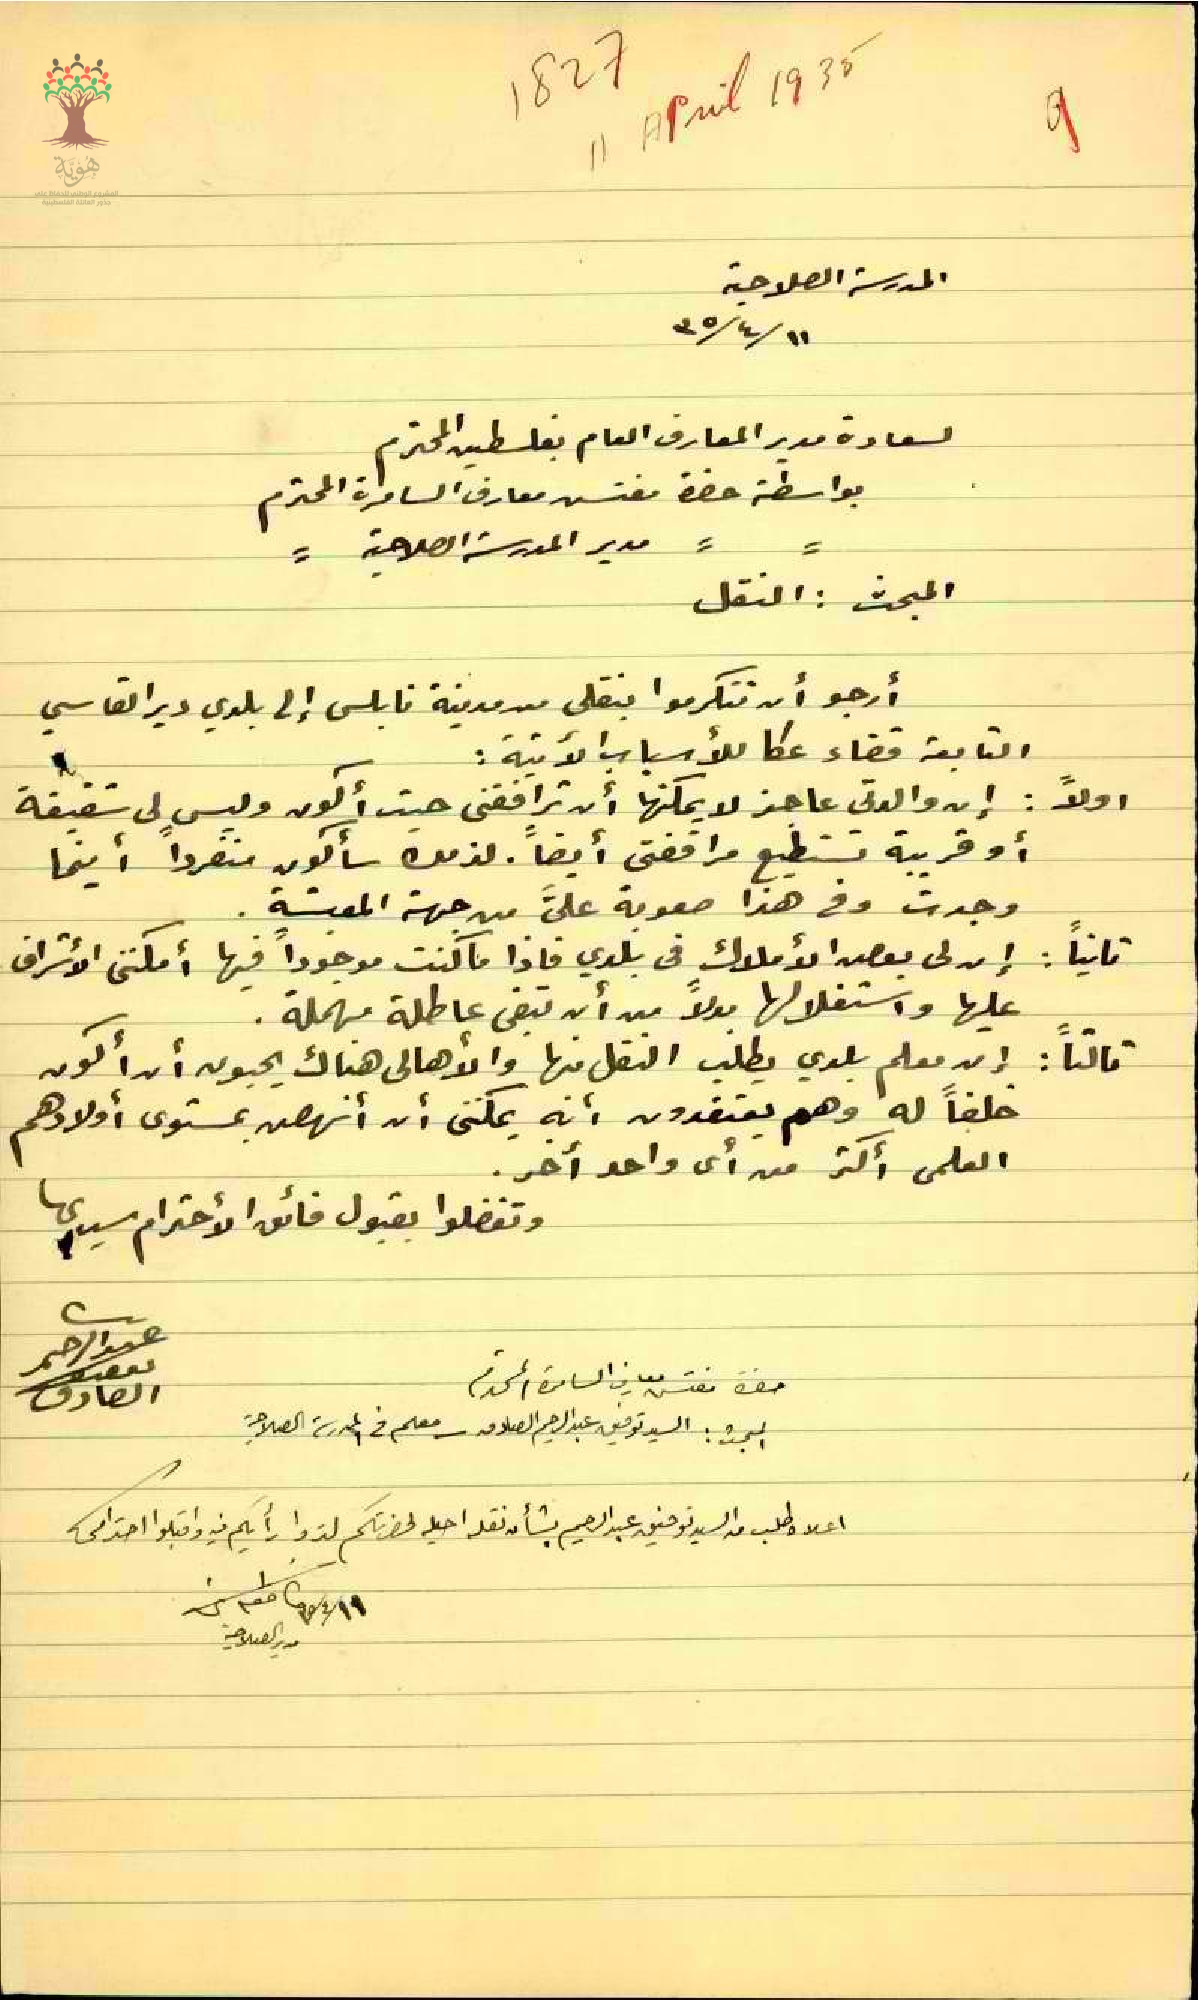 1827
11 April 1935
9
هُويّة
المشروع الوطني للحفاظ على
جذور العائلة الفلسطينية
المدرسة الصلاحية
١١/٤/٣٥
لسعادة مدير المعارف العام بفلسطين المحترم
بواسطة حضرة مفتش معارف السامرة المحترم
= = مدير المدرسة الصلاحية =
المبحث : النقل
أرجو أن تتكرموا بنقلي من مدينة نابلس إلى بلدي دير القاسي
التابعة قضاء عكا للأسباب الآتية :
اولاً : إن والدتي عاجز لا يمكنها أن ترافقني حيث أكون وليس لي شقيقة
أو قريبة تستطيع مرافقتي أيضاً . لذلك سأكون منفرداً أينما
وجدت وفي هذا صعوبة عليَّ من جهة المعيشة .
ثانياً : إن لي بعض الأملاك في بلدي فاذا ما كنت موجوداً فيها أمكنني الأشراف
عليها واستغلالها بدلاً من أن تبقى عاطلة مهملة .
ثالثاً : إن معلم بلدي يطلب النقل منها والأهالي هناك يحبون أن أكون
خلفاً له وهم يعتقدون أنه يمكنني أن أنهض بمستوى أولادهم
العلمي أكثر من أي واحد أخر .
وتفضلوا بقبول فائق الأحترام سيدي
عبد الرحيم
الصادق
حضرة مفتش معارف السامرة المحترم
المبحث : السيد توفيق عبد الرحيم الصادق معلم في المدرسة الصلاحية
اعلاه طلب من السيد توفيق عبد الرحيم بشأن نقله احيله لحضرتكم لتروا رأيكم فيه واقبلوا احترامي
١١/٤/٣٥
مدير الصلاحية